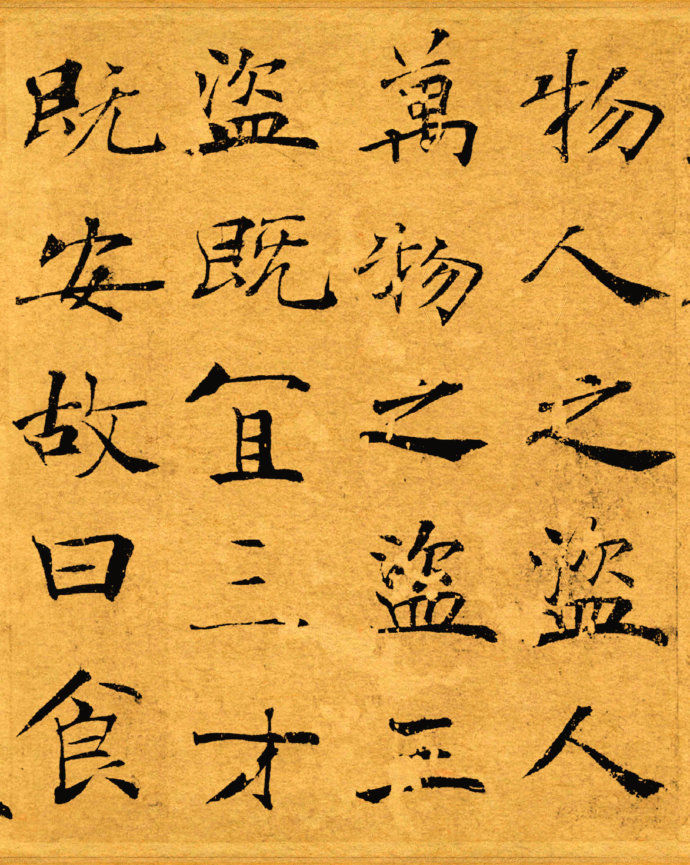 物人之盜人
萬物之盜三
盜既冝三才
既安故曰食